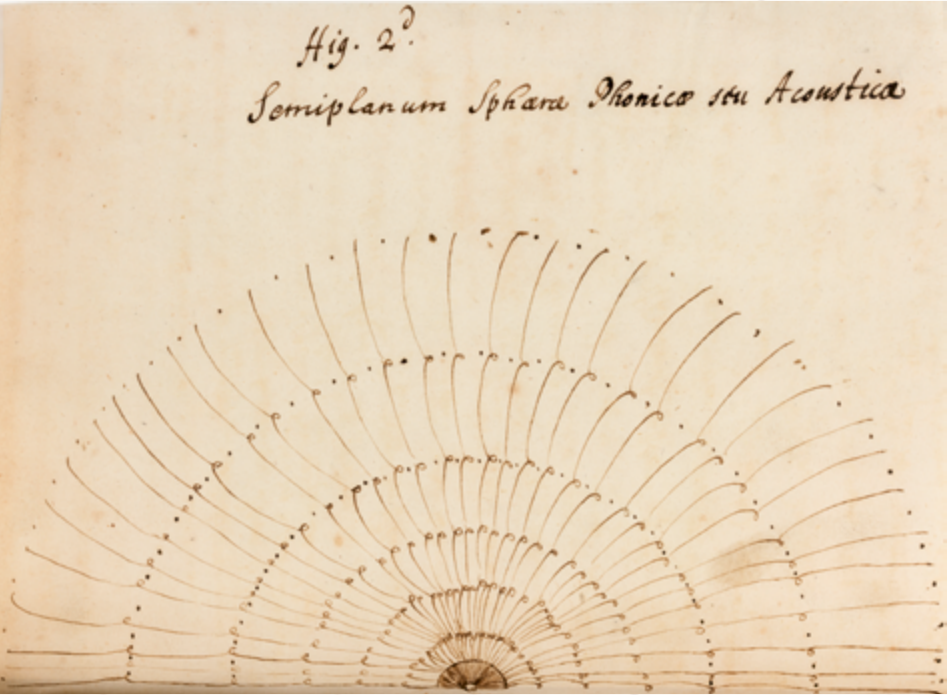 Fig. 2d.
Semiplanum Sphæræ Phonicæ seu Acousticæ